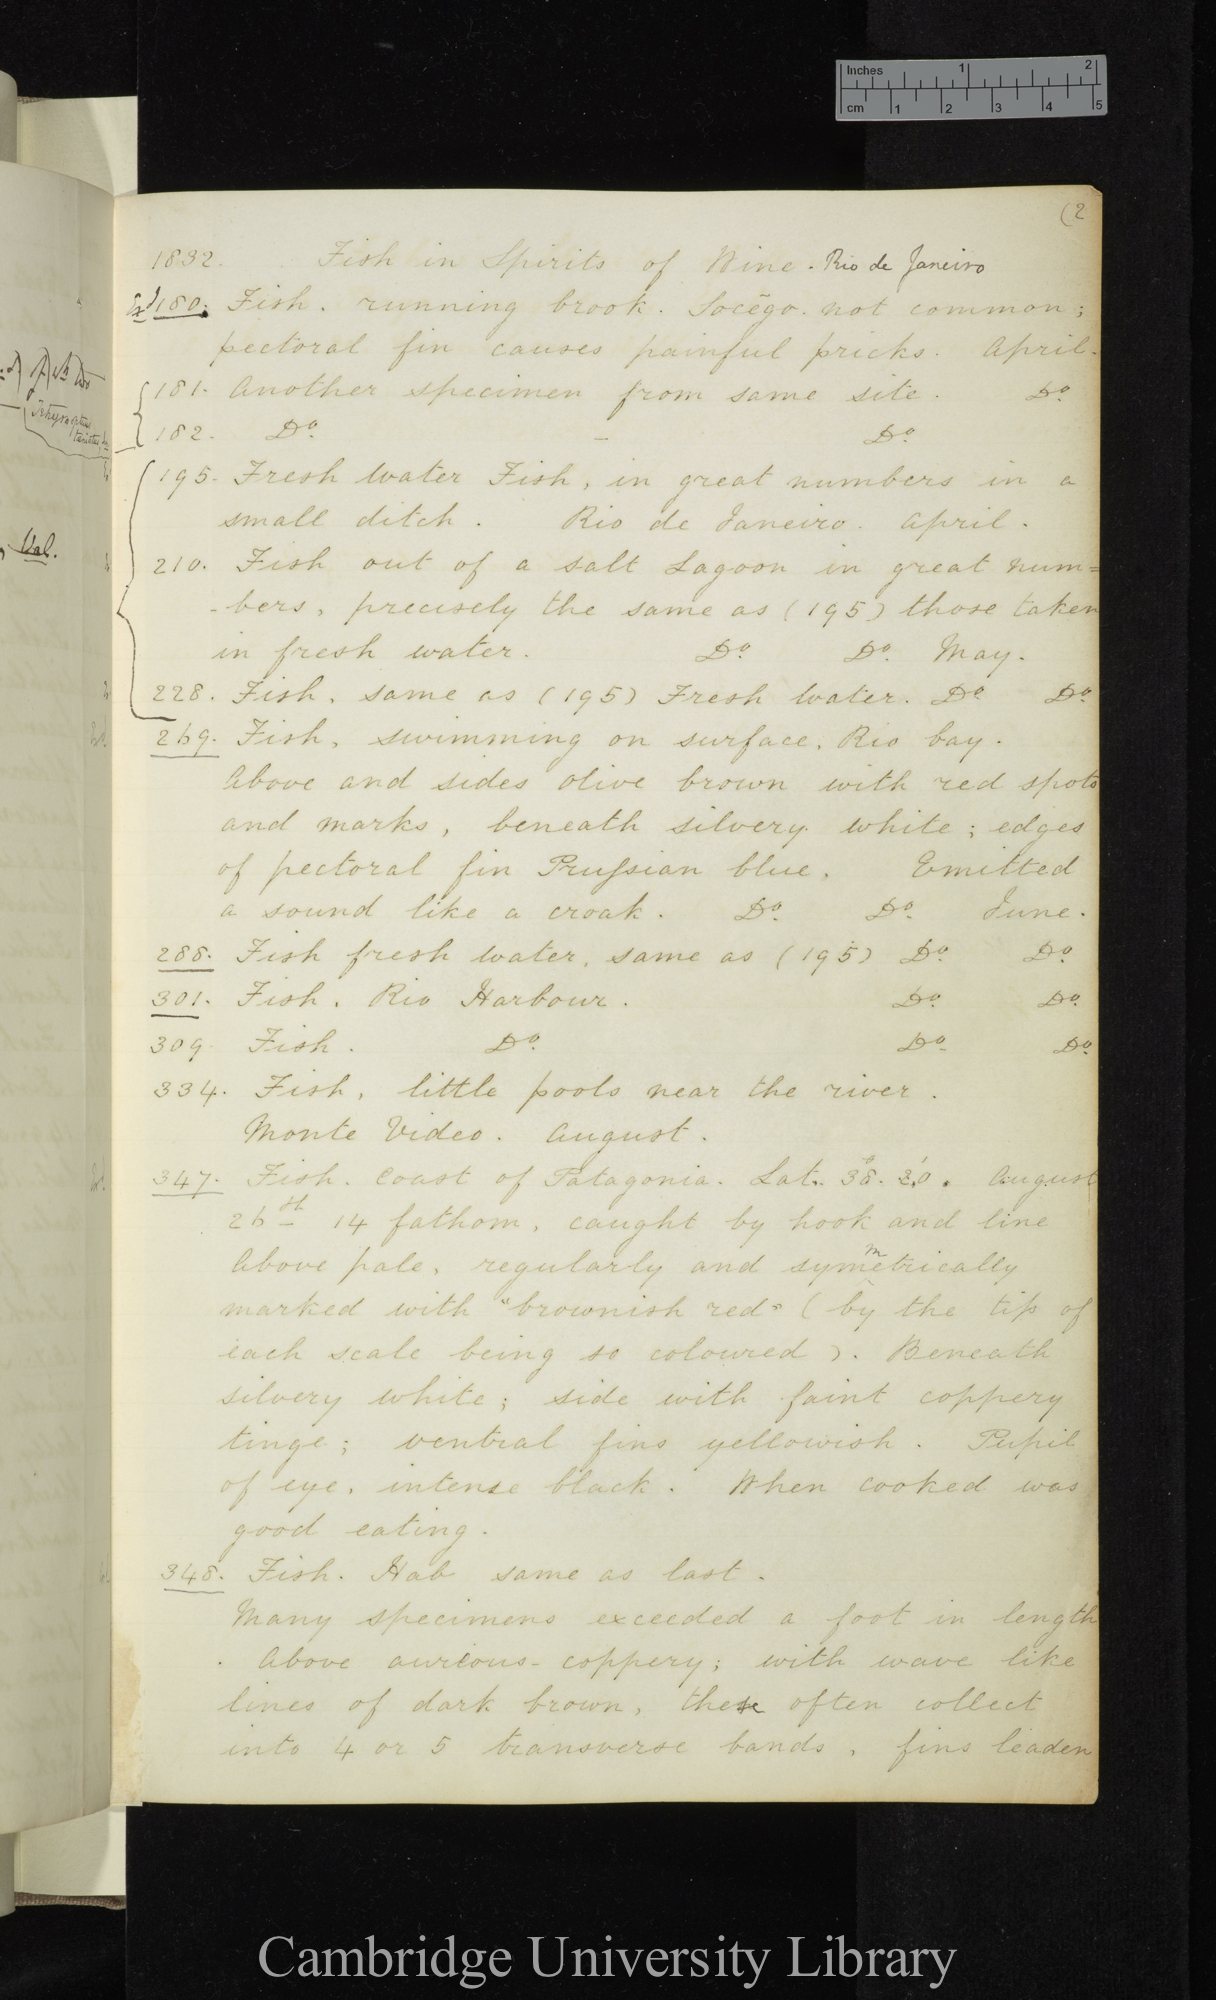 Inches 1 2
cm 1 2 3 4 5
(2
1832. Fish in Spirits of Wine. Rio de Janeiro
Exd 180. Fish. running brook. Socêgo. not common;
pectoral fin causes painful pricks. April.
181. Another specimen from same site. Do.
182. Do. – Do.
195. Fresh Water Fish, in great numbers in a
small ditch. Rio de Janeiro. April.
210. Fish out of a salt Lagoon in great num=
-bers, precisely the same as (195) those taken
in fresh water. Do. Do. May.
228. Fish, same as (195) Fresh Water. Do. Do.
269. Fish, swimming on surface, Rio bay.
Above and sides olive brown with red spots
and marks, beneath silvery white; edges
of pectoral fin Prussian blue. Emitted
a sound like a croak. Do. Do. June.
288. Fish fresh water, same as (195) Do. Do.
301. Fish. Rio Harbour. Do. Do.
309. Fish. Do. Do. Do.
334. Fish, little pools near the river.
Monte Video. August.
347. Fish. Coast of Patagonia. Lat. 38°. 20'. August
26th 14 fathom, caught by hook and line
Above pale, regularly and symmetrically
marked with "brownish red" (by the tip of
each scale being so coloured). Beneath
silvery white; side with faint coppery
tinge; ventral fins yellowish. Pupil
of eye, intense black. When cooked was
good eating.
348. Fish. Hab same as last.
Many specimens exceeded a foot in length
. Above aureous-coppery; with wave like
lines of dark brown, these often collect
into 4 or 5 transverse bands, fins leaden
Val.
Cambridge University Library